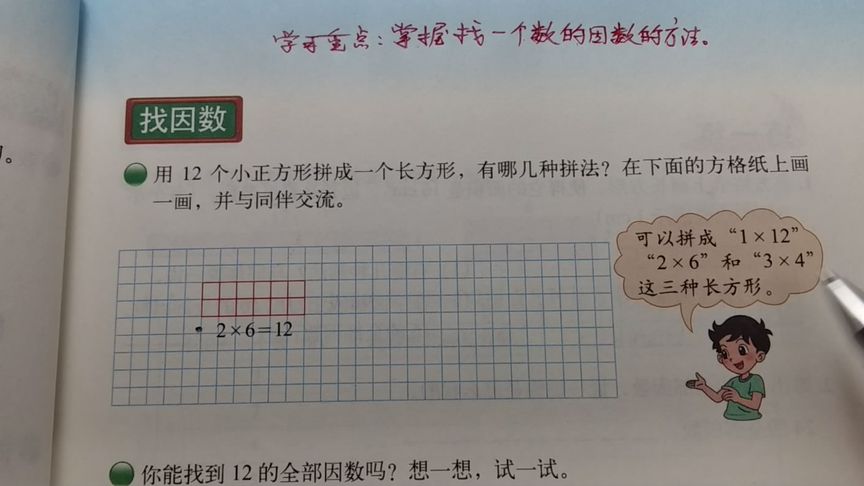 学习重点：掌握找一个数的因数的方法。
找因数
用 12 个小正方形拼成一个长方形，有哪几种拼法？在下面的方格纸上画
一画，并与同伴交流。
可以拼成“1×12”
“2×6”和“3×4”
这三种长方形。
2×6=12
你能找到 12 的全部因数吗？想一想，试一试。